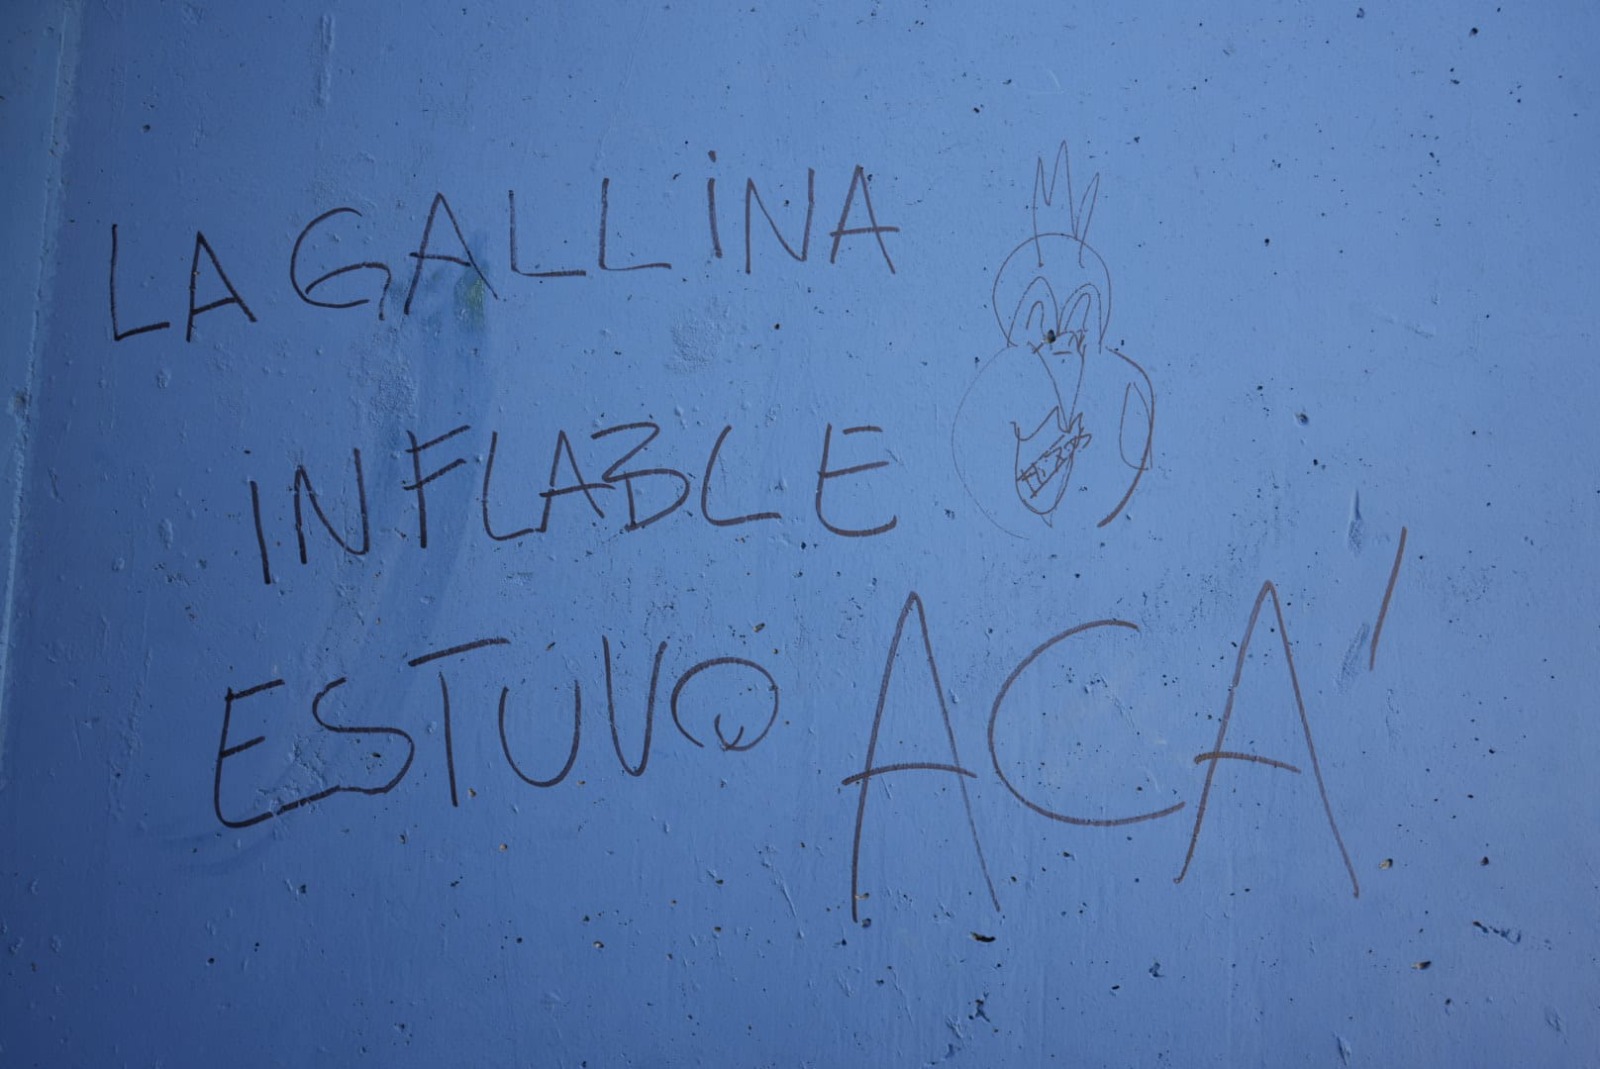 LA GALLINA
INFLABLE
ESTUVO ACA'